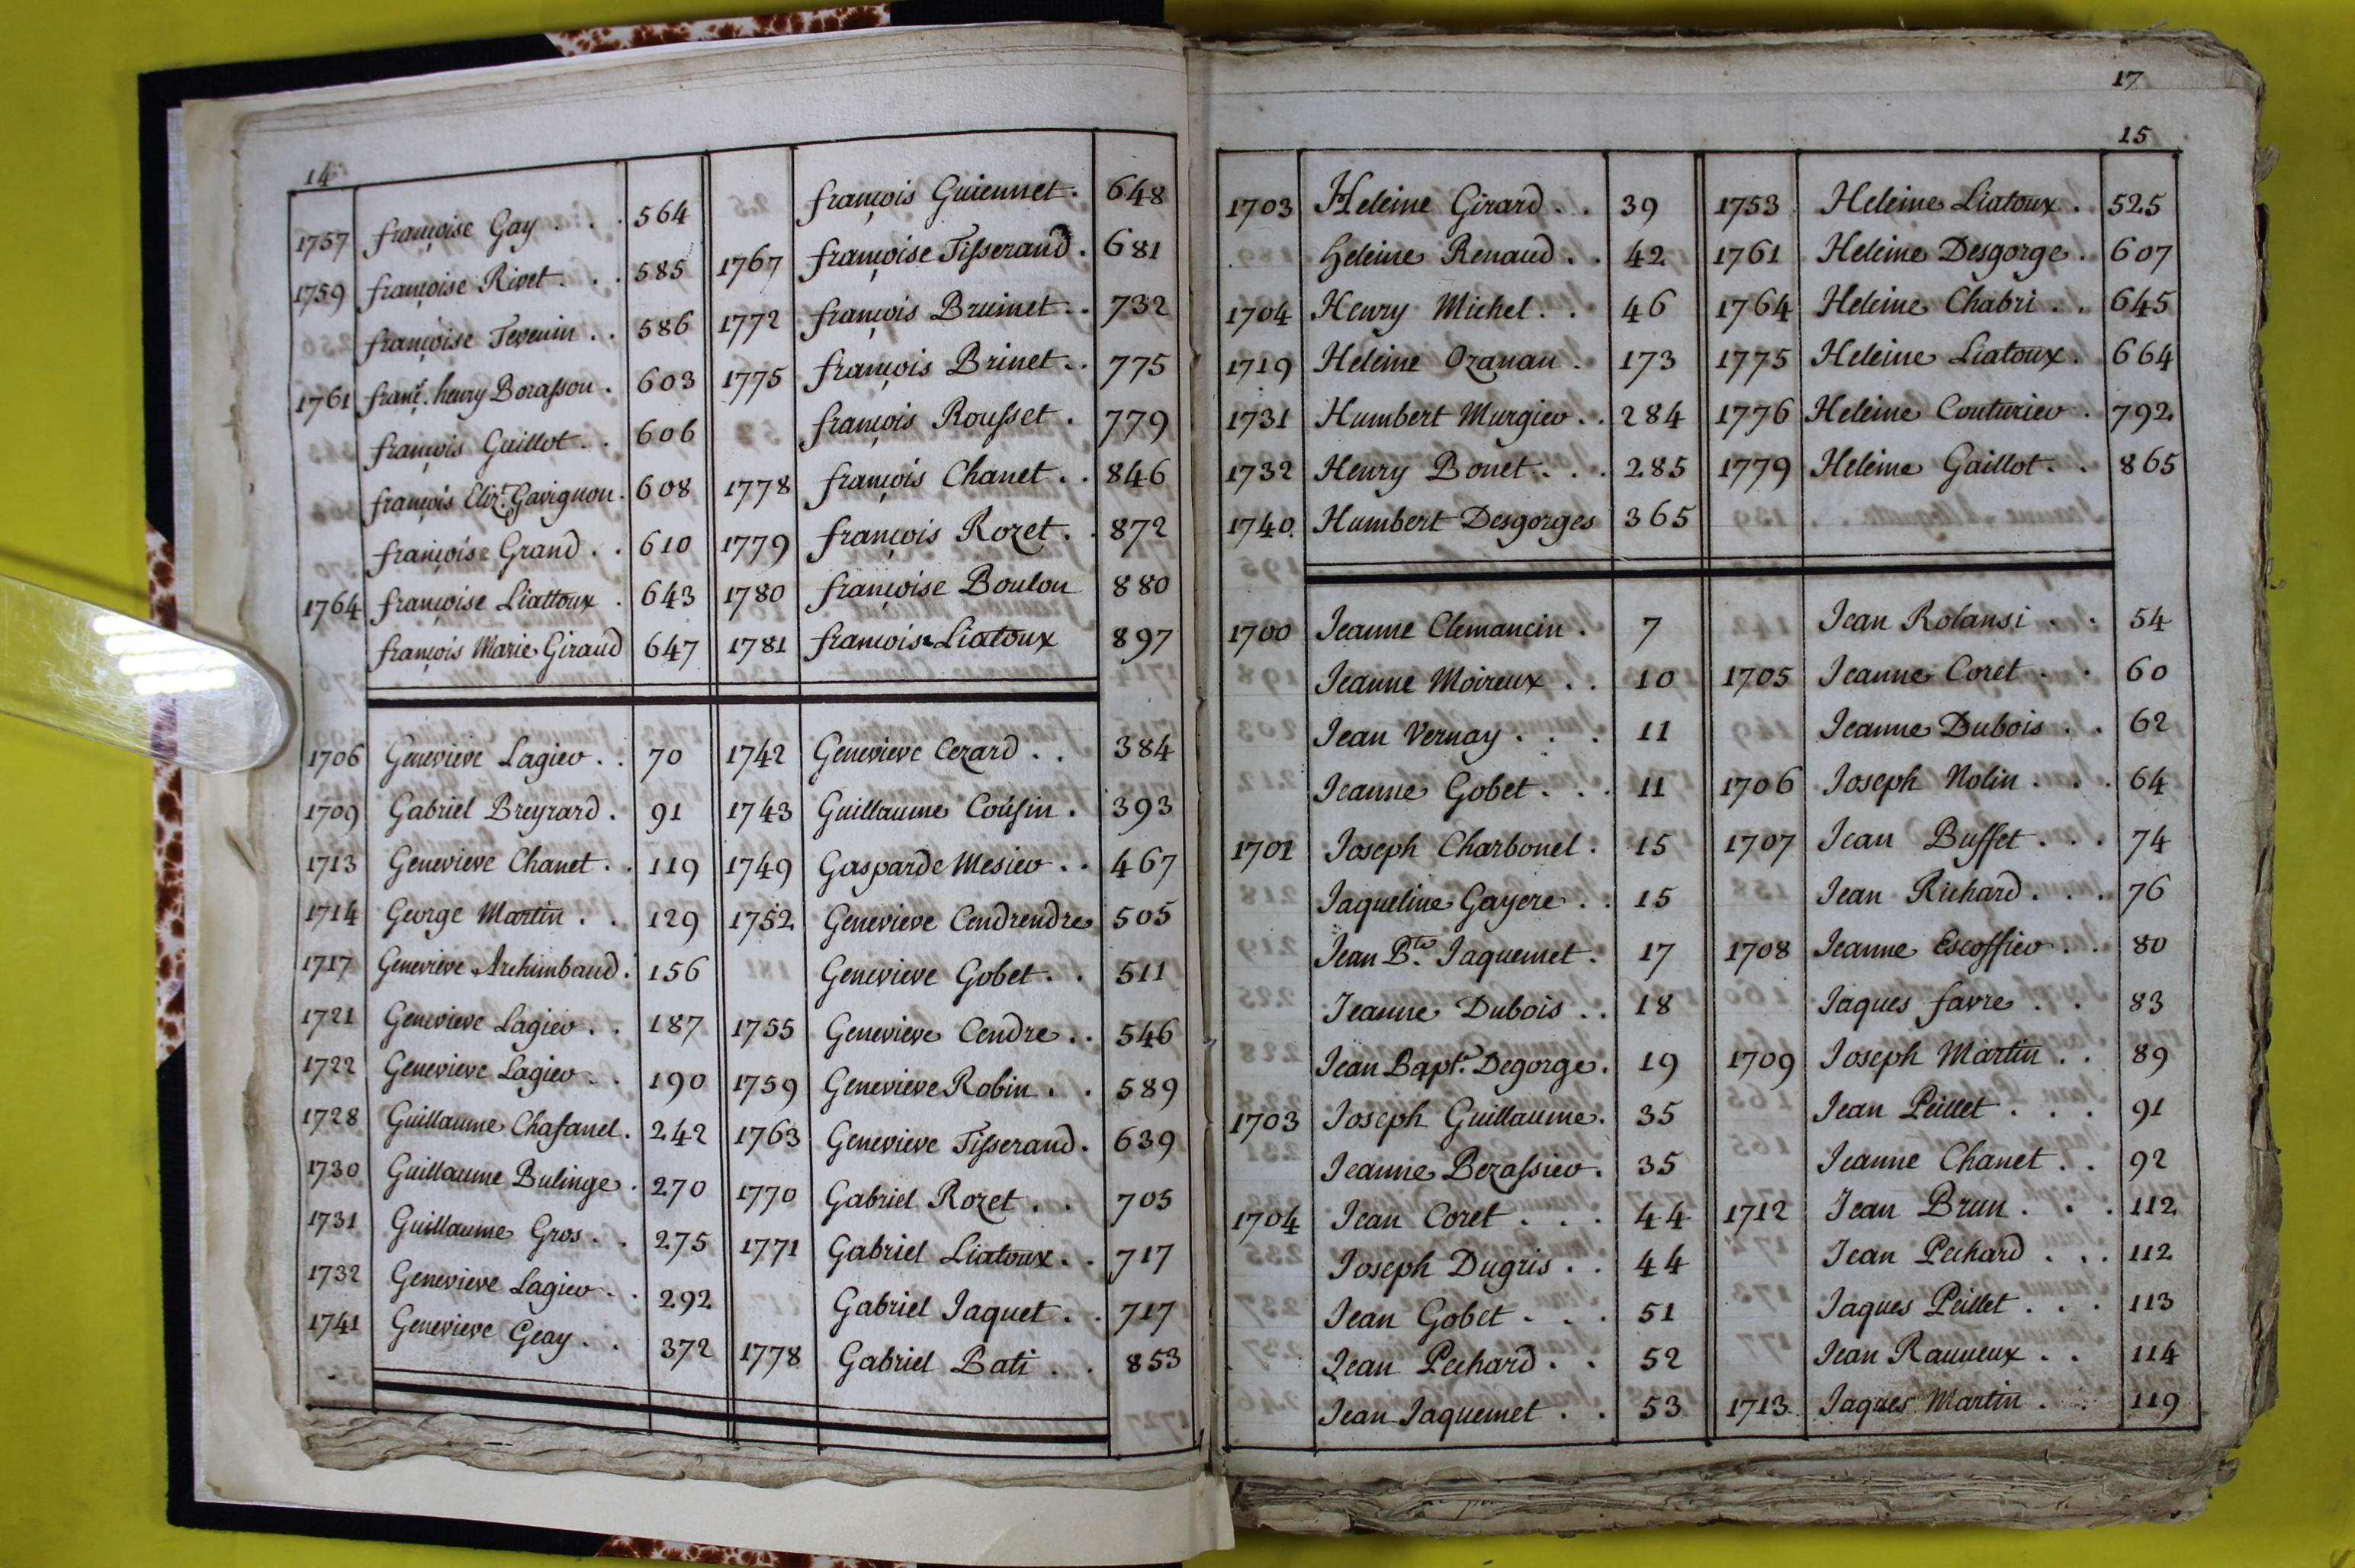 14
1757 françoise Gay . . . 564
1759 françoise Rivet . . . 585
françoise Tevenin . . 586
1761 franç. henry Borasson . 603
françois Guillot . . 606
françois Eliz. Gavignon . 608
françoise Grand . . 610
1764 françoise Liattoux . 643
françois Marie Giraud 647
françois Guiennet . 648
1767 françoise Tisserand . 681
1772 françois Bruinet . . 732
1775 françois Brinet . . 775
françois Rousset . 779
1778 françois Chanet . . 846
1779 françois Rozet . . 872
1780 françoise Boulon 880
1781 françoise Liatoux 897
1706 Genevieve Lagiev . . 70
1709 Gabriel Breyrard . 91
1713 Genevieve Chanet . . 119
1714 George Martin . . 129
1717 Genevieve Archimbaud . 156
1721 Genevieve Lagiev . . 187
1722 Genevieve Lagiev . . 190
1728 Guillaume Chasanel . 242
1730 Guillaume Bulinge . 270
1731 Guillaume Gros . . 275
1732 Genevieve Lagiev . . 292
1741 Genevieve Geay . . 372
1742 Genevieve Cezard . . 384
1743 Guillaume Cousin . 393
1749 Gasparde Mesiev . . 467
1752 Genevieve Cendrendre 505
Genevieve Gobet . . 511
1755 Genevieve Cendre . . 546
1759 Genevieve Robin . . 589
1763 Genevieve Tisserand . 639
1770 Gabriel Rozet . . 705
1771 Gabriel Liatoux . . 717
Gabriel Jaquet . . 717
1778 Gabriel Bati . . 853
17
15
1703 Heleine Girard . . 39
Heleine Renaud . . 42
1704 Henry Michel . . 46
1719 Heleine Ozanan . 173
1731 Humbert Murgiev . . 284
1732 Henry Bonet . . . 285
1740 Humbert Desgorges 365
1753 Heleine Liatoux . 525
1761 Heleine Desgorge . 607
1764 Heleine Chabri . . 645
1775 Heleine Liatoux . 664
1776 Heleine Couturiev . 792
1779 Heleine Gaillot . . 865
1700 Jeanne Clemancin . 7
Jeanne Moireux . . 10
Jean Vernay . . . 11
Jeanne Gobet . . . 11
1701 Joseph Charbonel . 15
Jaqueline Gayere . . 15
Jean B.te Jaquemet . 17
Jeanne Dubois . . 18
Jean Bapt.e Degorge . 19
1703 Joseph Guillaume . 35
Jeanne Bezassiev . 35
1704 Jean Coret . . . 44
Joseph Dugris . . 44
Jean Gobet . . . 51
Jean Pechard . . 52
Jean Jaquemet . . 53
Jean Rolansi . . 54
1705 Jeanne Coret . . 60
Jeanne Dubois . . 62
1706 Joseph Nolin . . . 64
1707 Jean Buffet . . . 74
Jean Richard . . . 76
1708 Jeanne Escoffiev . . 80
Jaques favre . . 83
1709 Joseph Martin . . 89
Jean Peillet . . . 91
Jeanne Chanet . . 92
1712 Jean Brun . . . 112
Jean Pechard . . . 112
Jaques Peillet . . . 113
Jean Rauneux . . 114
1713 Jaques Martin . . 119